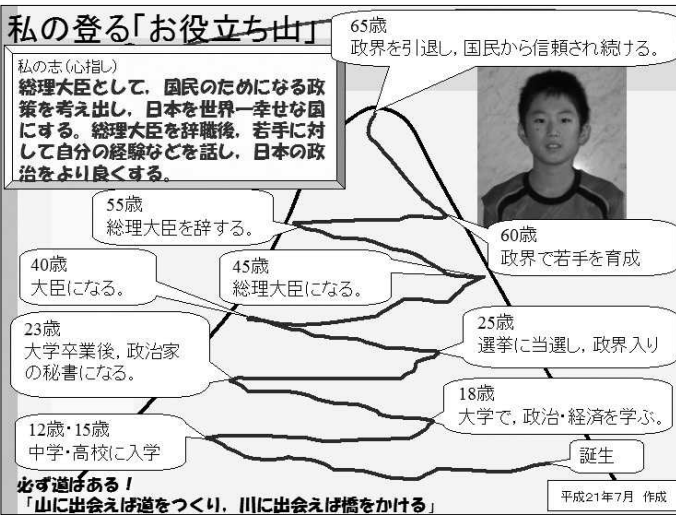 私の登る「お役立ち山」
私の志(心指し)
総理大臣として，国民のためになる政
策を考え出し，日本を世界一幸せな国
にする。総理大臣を辞職後，若手に対
して自分の経験などを話し，日本の政
治をより良くする。
65歳
政界を引退し，国民から信頼され続ける。
60歳
政界で若手を育成
55歳
総理大臣を辞する。
45歳
総理大臣になる。
40歳
大臣になる。
25歳
選挙に当選し，政界入り
23歳
大学卒業後，政治家
の秘書になる。
18歳
大学で，政治・経済を学ぶ。
12歳・15歳
中学・高校に入学
誕生
必ず道はある！
「山に出会えば道をつくり，川に出会えば橋をかける」
平成21年7月 作成